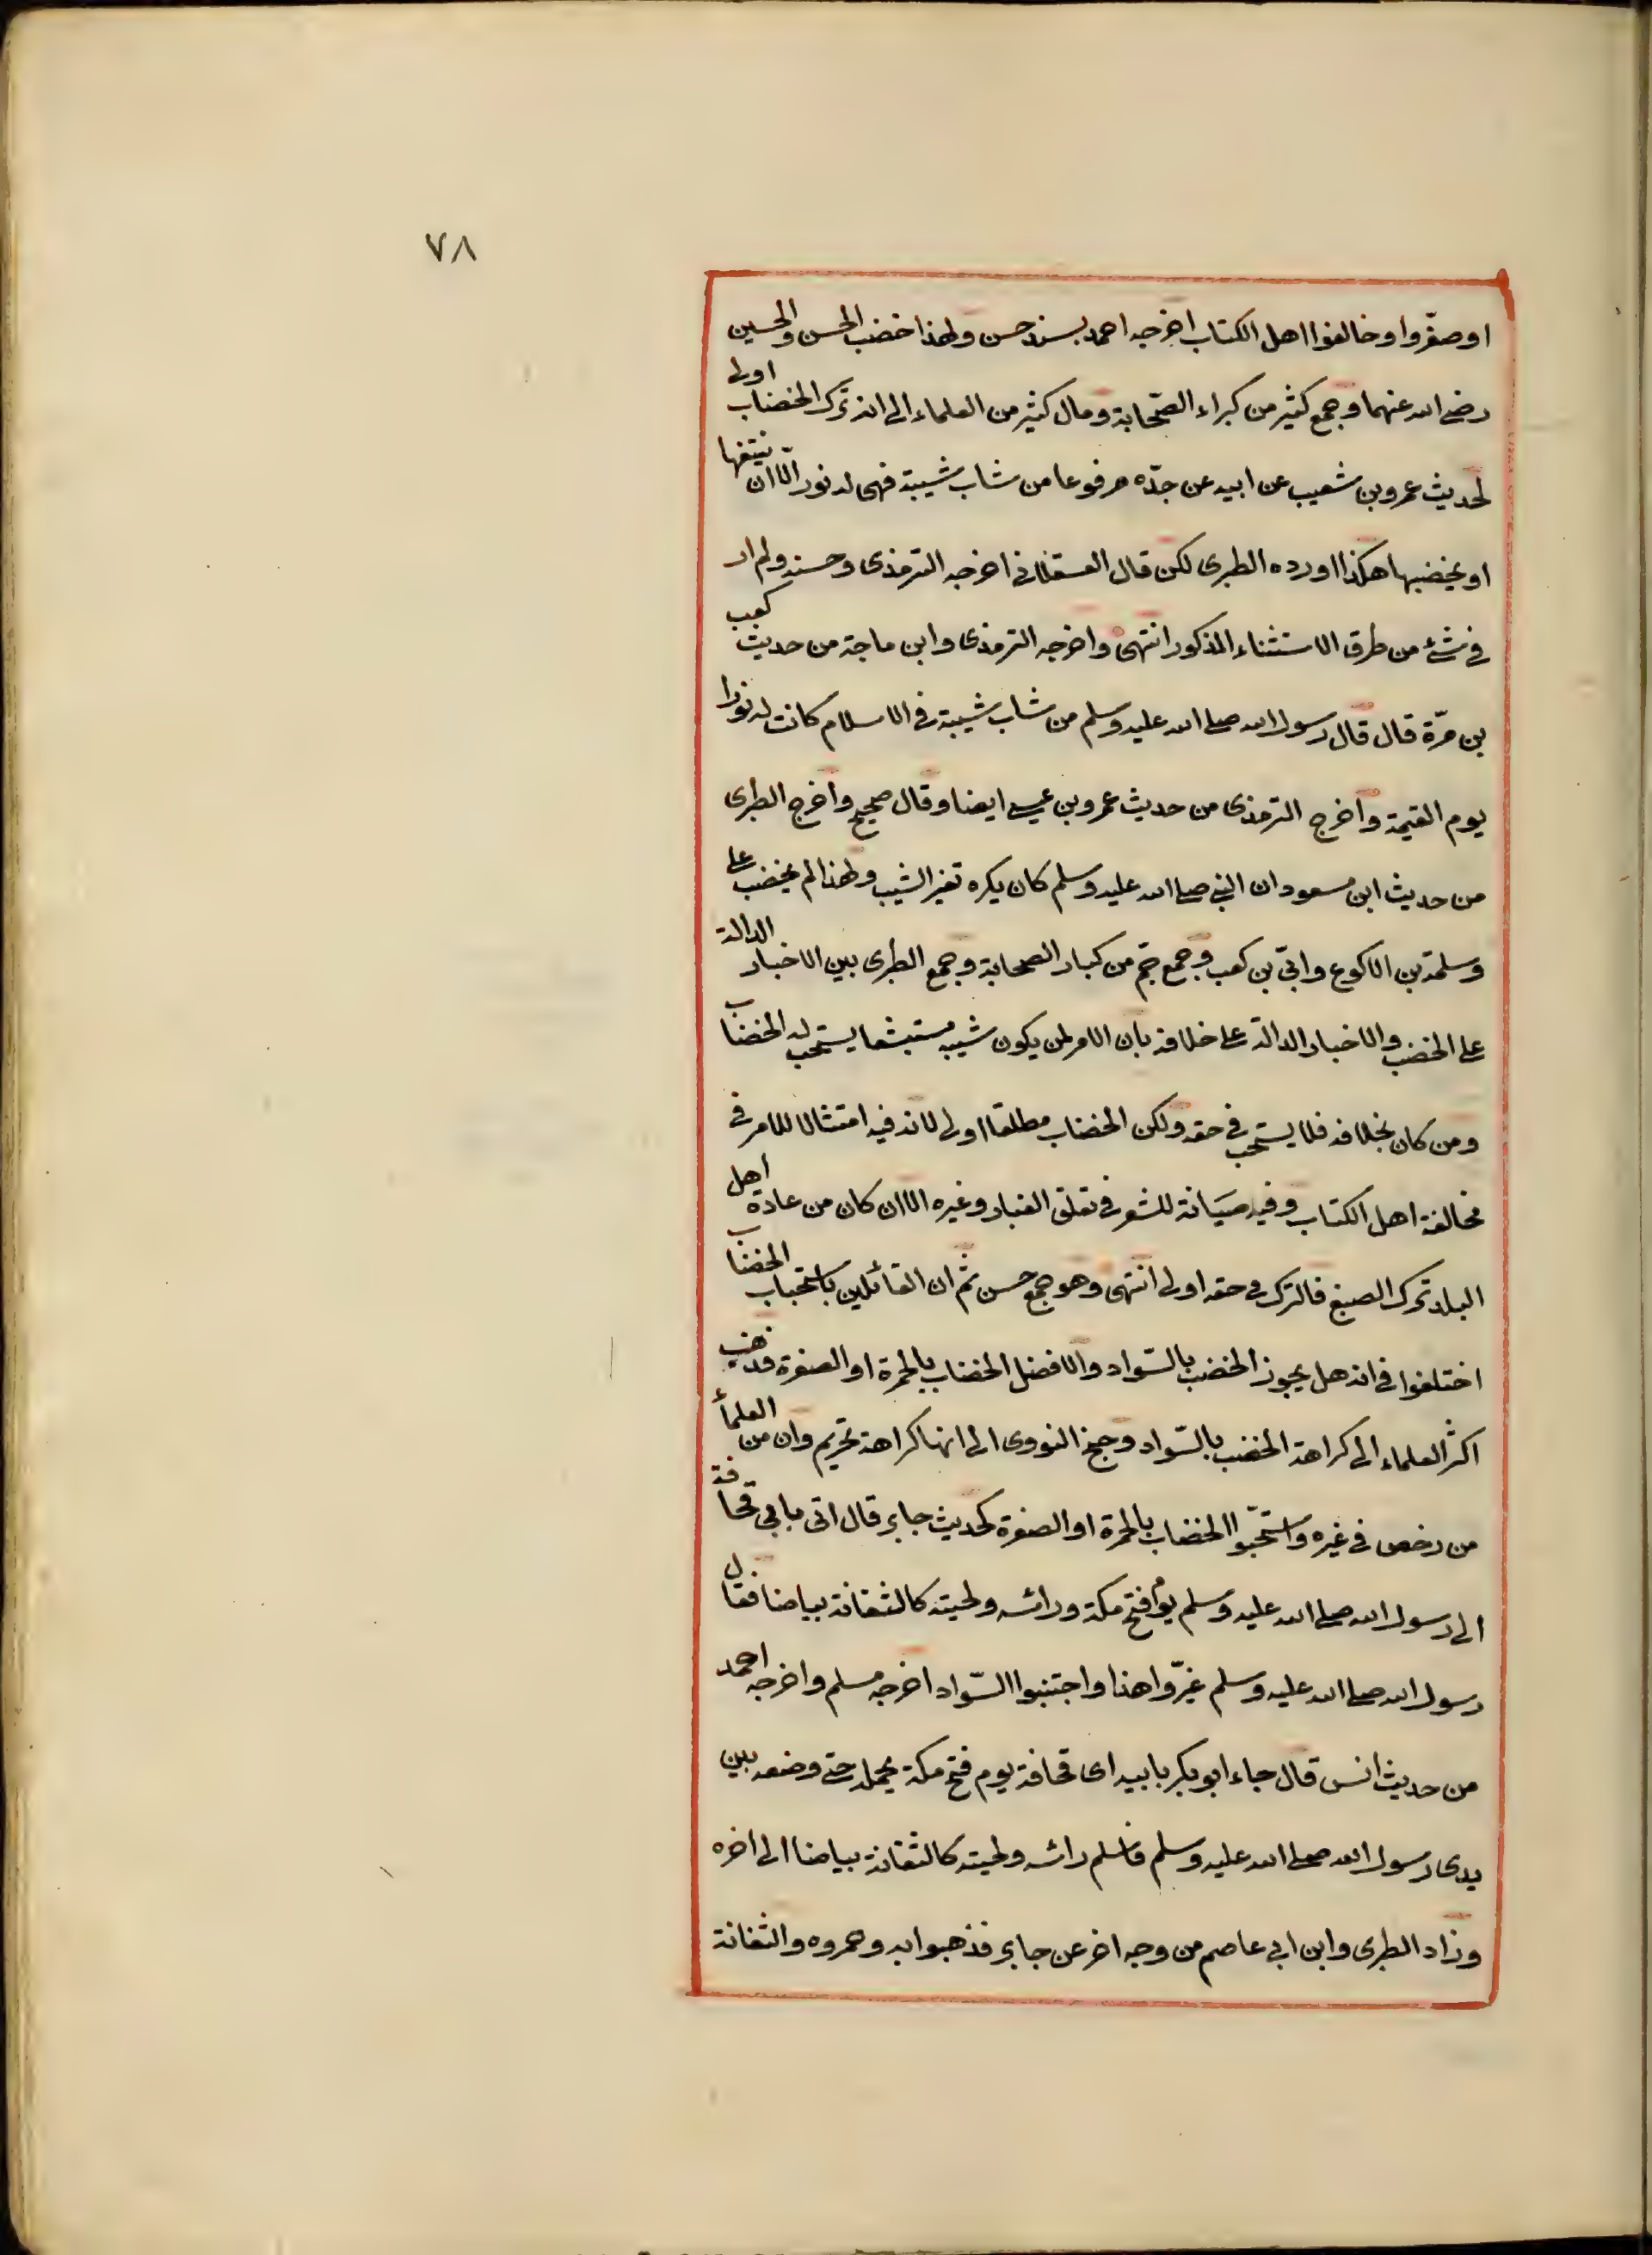 ٧٨
او صفّروا وخالفوا اهل الكتاب اخرجه احمد بسند حسن ولهذا خضب الحسن والحسين
رضي الله عنهما وجمع كثير من كبراء الصّحابة ومال كثير من العلماء الى انه ترك الخضاب اولى
لحديث عمرو بن شعيب عن ابيه عن جدّه مرفوعا من شاب شيبة فهى له نور الّا ان ينتفها
او يخضبها هكذا اورده الطبرى لكن قال العسقلانى اخرجه الترمذى وحسنه ولم ار
فى شئ من طرق الاستثناء المذكور انتهى واخرجه الترمذى وابن ماجة من حديث كعب
بن مرّة قال قال رسول الله صلى الله عليه وسلم من شاب شيبة فى الاسلام كانت له نورا
يوم القيمة واخرج الترمذى من حديث عمرو بن عبسى ايضا وقال صحيح واخرج الطبرى
من حديث ابن مسعود ان النبى صلى الله عليه وسلم كان يكره تغير الشيب ولهذا لم يخضب على
وسلمة بن الاكوع وابىّ بن كعب وجمع جمّ من كبار الصحابة وجمع الطبرى بين الاخبار الدالة
على الخضب والاخبار الدالة على خلافه بان الامر لمن يكون شيبه مستبشعا يستحب له الخضاب
ومن كان بخلافه فلا يستحب فى حقه ولكن الخضاب مطلقا اولى لانه فيه امتثالا للامر فى
مخالفة اهل الكتاب وفيه صيانة للشعر فى تعلق الغبار وغيره الا ان كان من عادة اهل
البلد ترك الصبغ فالترك فى حقه اولى انتهى وهو جمع حسن ثم ان القائلين باستحباب الخضاب
اختلفوا فى انه هل يجوز الخضب بالسّواد والافضل الخضاب بالحمرة او الصفرة فذهب
اكثر العلماء الى كراهة الخضب بالسّواد وجنح النووى الى انها كراهة تحريم وان من العلمأ
من رخص فى غيره واستحبّوا الخضاب بالحمرة او الصفرة لحديث جابر قال اتى بابى قحافة
الى رسول الله صلى الله عليه وسلم يوم فتح مكة ورائسه ولحيته كالثغانة بياضا فقال
رسول الله صلى الله عليه وسلم غيّروا هذا واجتنبوا السّواد اخرجه مسلم واخرجه احمد
من حديث انس قال جاء ابو بكر بابيه اى قحافة يوم فتح مكة يحمله حتى وضعه بين
يدى رسول الله صلى الله عليه وسلم فاسلم رائسه ولحيته كالثغانة بياضا الى اخره
وزاد الطبرى وابن ابى عاصم من وجه اخر عن جابر فذهبوا به وحمروه والثغانة